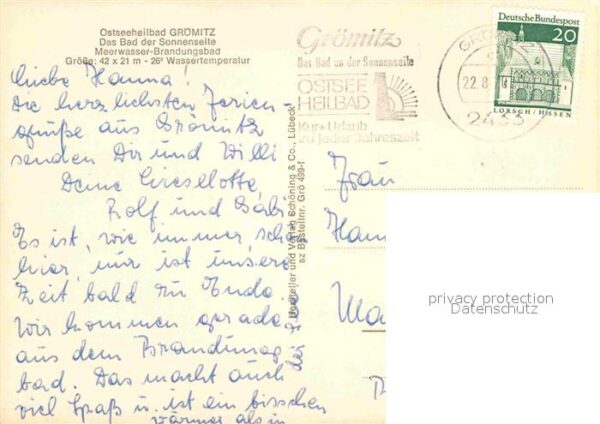 Ostseeheilbad GRÖMITZ
Das Bad der Sonnenseite
Meerwasser-Brandungsbad
Größe: 42 x 21 m - 26° Wassertemperatur
Liebe Hanna!
Die herzlichsten Ferien-
grüße aus Grömitz
senden Dir und Willi
Deine Lieselotte,
Rolf und Gabi
Es ist, wie immer, schön
hier, nur ist unsere
Zeit bald zu Ende.
Wir kommen gerade
aus dem Brandungs
bad. Das macht auch
viel Spaß u. ist ein bisschen
wärmer als in
der
Hersteller und Verlag Schöning & Co., Lübeck
sz Bestellnr. Grö 499-f
Grömitz
Das Bad an der Sonnenseite
OSTSEE
HEILBAD
Kur + Urlaub
zu jeder Jahreszeit
22.8
2433
Deutsche Bundespost
20
LORSCH/HESSEN
Frau
Han
Ma
privacy protection
Datenschutz